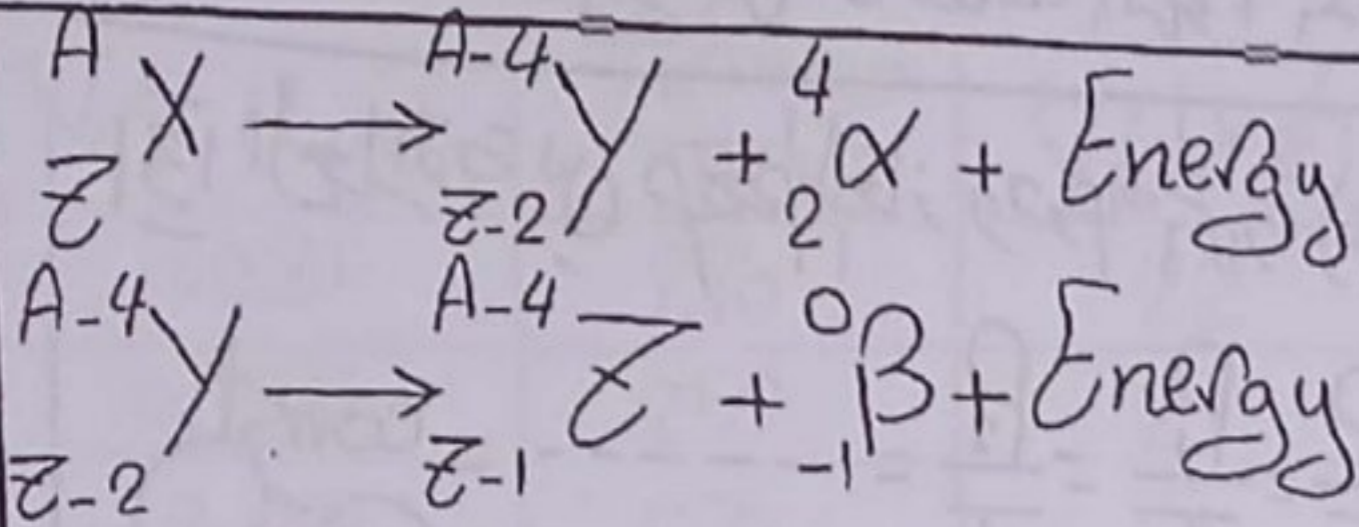 ᴬ_Z X → ᴬ⁻⁴_Z-2 Y + ⁴₂α + Energy
ᴬ⁻⁴_Z-2 Y → ᴬ⁻⁴_Z-1 Z + ⁰₋₁β + Energy